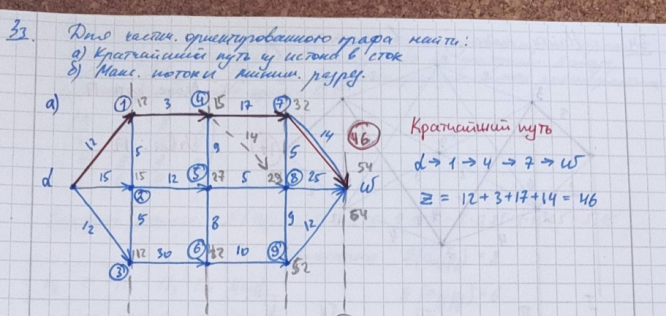 Зз. Для частич. ориентированного графа найти:
а) Кратчайший путь из истока в сток
б) Макс. поток и миним. разрез.
а)
1 12 3 4 15 17 7 32
12 5 9 14 5 14 46
Кратчайший путь
54
α 15 15 12 5 27 5 29 8 25 ω
α → 1 → 4 → 7 → ω
2
54
z = 12 + 3 + 17 + 14 = 46
12 5 8 9 12
12 30 6 10 9 52
3